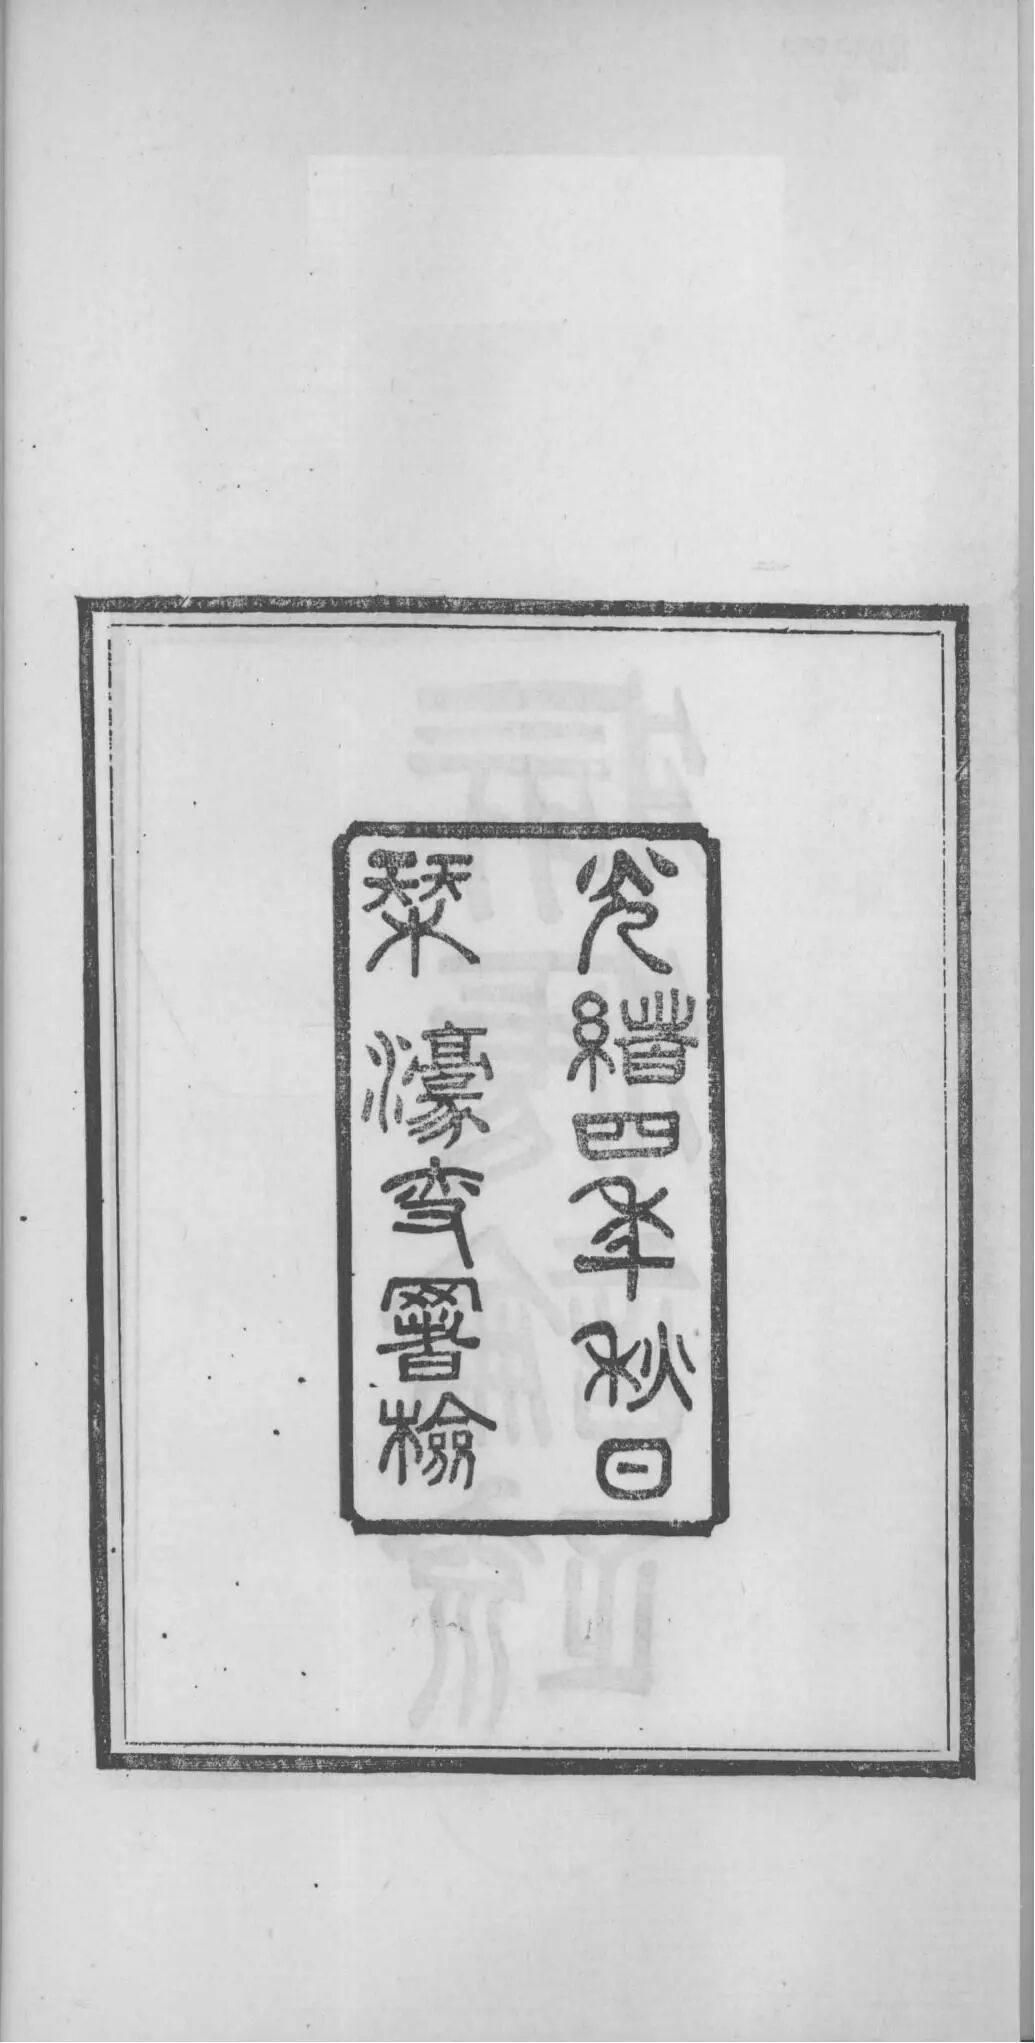 光緒四年秋日
栞濠叟署檢